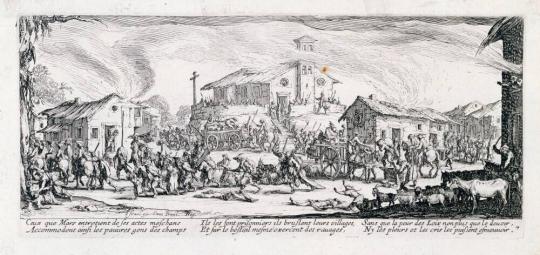 Ceux que Mars entretient de ses actes meschans
Accommodent ainsi les pauures gens des champs
Ils les font prisonniers ils bruslent leurs villages,
Et sur le bestail mesme exercent des rauages,
Sans que la peur des Loix non plus que le deuoir
Ny les pleurs et les cris les puissent esmouuoir.
7